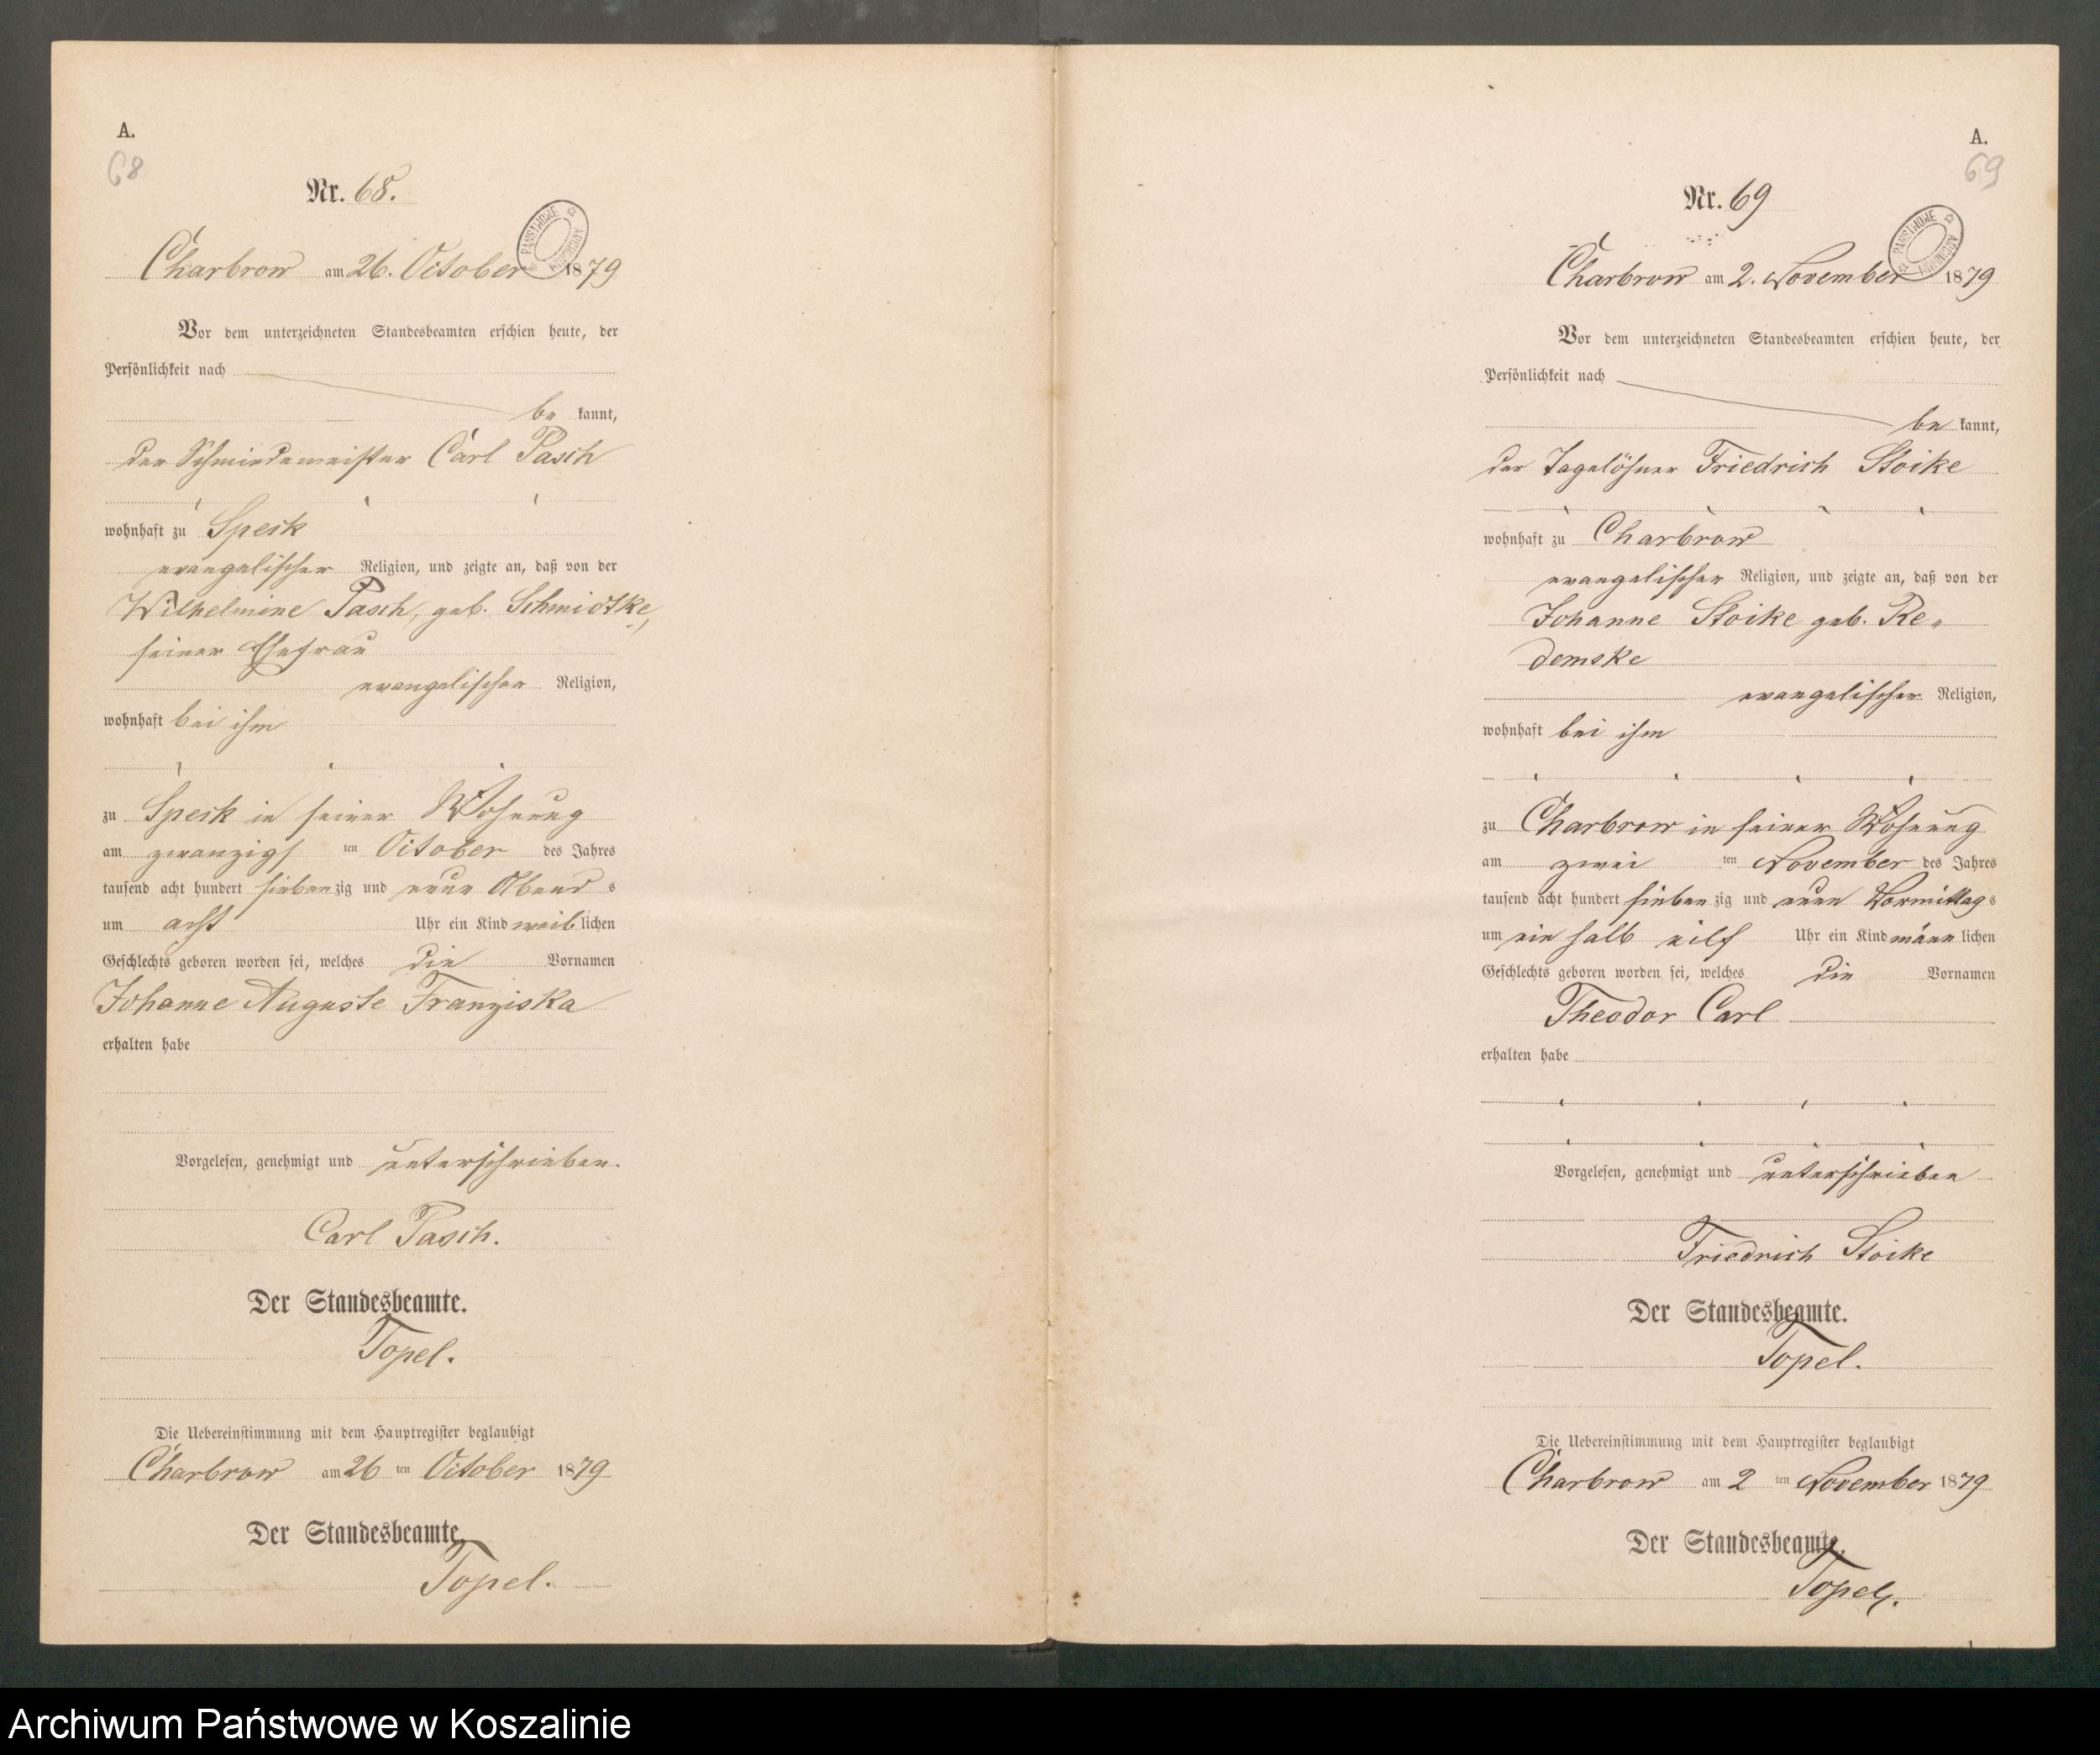 A.
68
Nr. 68.
PAŃSTWOWE ARCHIWUM
Charbrow am 26. October 1879
Vor dem unterzeichneten Standesbeamten erschien heute, der
Persönlichkeit nach
be kannt,
der Schmiedemeister Carl Pasch
wohnhaft zu Speck
evangelischer Religion, und zeigte an, daß von der
Wilhelmine Pasch, geb. Schmidtke,
seiner Ehefrau
evangelischer Religion,
wohnhaft bei ihm
zu Speck in seiner Wohnung
am zwanzigs ten October des Jahres
tausend acht hundert siebenzig und neun Abend s
um acht Uhr ein Kind weib lichen
Geschlechts geboren worden sei, welches die Vornamen
Johanne Auguste Franziska
erhalten habe
Vorgelesen, genehmigt und unterschrieben.
Carl Pasch.
Der Standesbeamte.
Topel.
Die Uebereinstimmung mit dem Hauptregister beglaubigt
Charbrow am 26 ten October 1879
Der Standesbeamte.
Topel.
A.
69
Nr. 69
PAŃSTWOWE ARCHIWUM
Charbrow am 2. November 1879
Vor dem unterzeichneten Standesbeamten erschien heute, der
Persönlichkeit nach
be kannt,
der Tagelöhner Friedrich Stoike
wohnhaft zu Charbrow
evangelischer Religion, und zeigte an, daß von der
Johanne Stoike geb. Re-
demske
evangelischer Religion,
wohnhaft bei ihm
zu Charbrow in seiner Wohnung
am zwei ten November des Jahres
tausend acht hundert sieben zig und neun Vormittag s
um ein halb eilf Uhr ein Kind männ lichen
Geschlechts geboren worden sei, welches die Vornamen
Theodor Carl
erhalten habe
Vorgelesen, genehmigt und unterschrieben
Friedrich Stoike
Der Standesbeamte.
Topel.
Die Uebereinstimmung mit dem Hauptregister beglaubigt
Charbrow am 2 ten November 1879
Der Standesbeamte.
Topel.
Archiwum Państwowe w Koszalinie